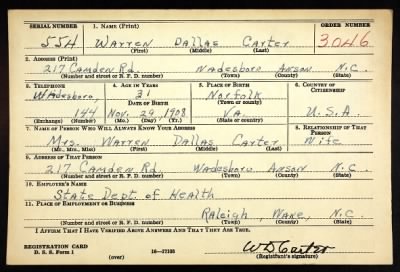 SERIAL NUMBER 1. NAME (Print) ORDER NUMBER
554 Warren Dallas Carter 3046
(First) (Middle) (Last)
2. ADDRESS (Print)
217 Camden Rd. Wadesboro Anson N.C.
(Number and street or R. F. D. number) (Town) (County) (State)
3. TELEPHONE 4. AGE IN YEARS 5. PLACE OF BIRTH 6. COUNTRY OF CITIZENSHIP
Wadesboro, 31 Norfolk
DATE OF BIRTH (Town or county)
144 Nov. 29, 1908 Va. U.S.A.
(Exchange) (Number) (Mo.) (Day) (Yr.) (State or country)
7. NAME OF PERSON WHO WILL ALWAYS KNOW YOUR ADDRESS 8. RELATIONSHIP OF THAT PERSON
Mrs. Warren Dallas Carter Wife
(Mr., Mrs., Miss) (First) (Middle) (Last)
9. ADDRESS OF THAT PERSON
217 Camden Rd Wadesboro Anson N.C.
(Number and street or R. F. D. number) (Town) (County) (State)
10. EMPLOYER'S NAME
State Dept. of Health
11. PLACE OF EMPLOYMENT OR BUSINESS
Raleigh, Wake, N.C.
(Number and street or R. F. D. number) (Town) (County) (State)
I AFFIRM THAT I HAVE VERIFIED ABOVE ANSWERS AND THAT THEY ARE TRUE.
REGISTRATION CARD
D. S. S. Form 1 16—17105 W D Carter
(over) (Registrant's signature)